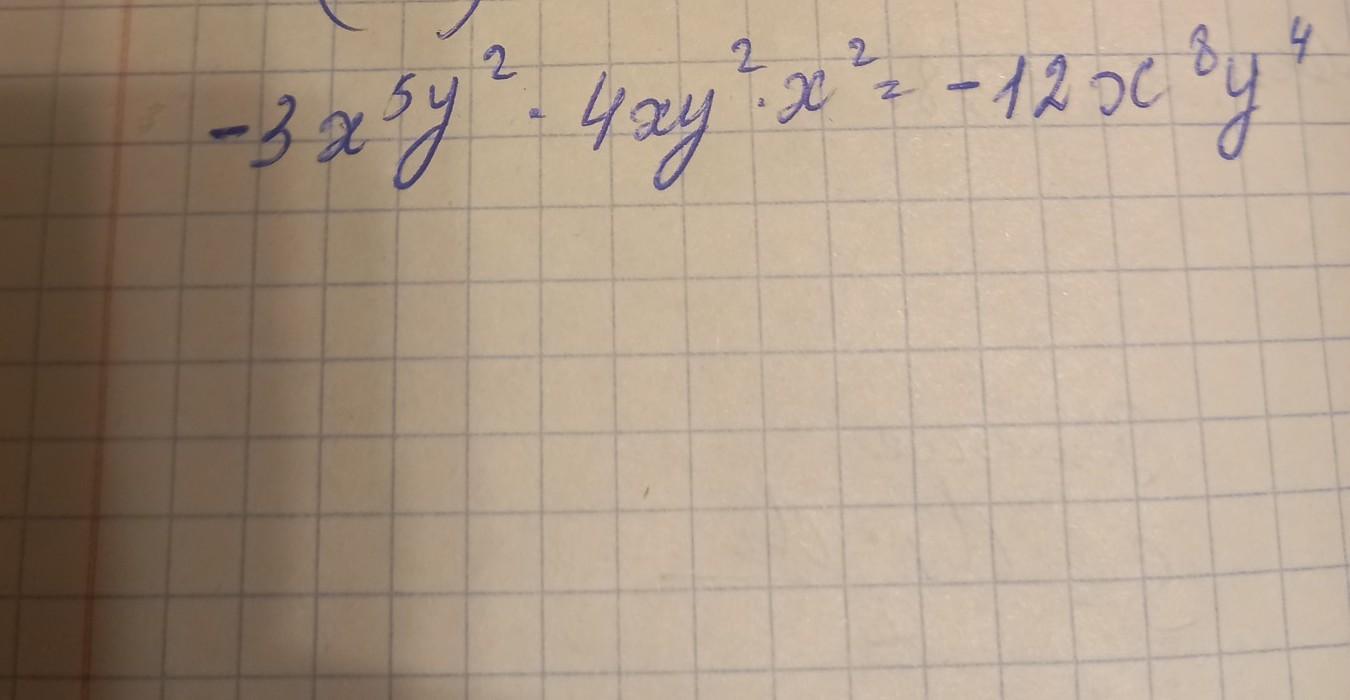 -3x⁵y² · 4xy² · x² = -12x⁸y⁴